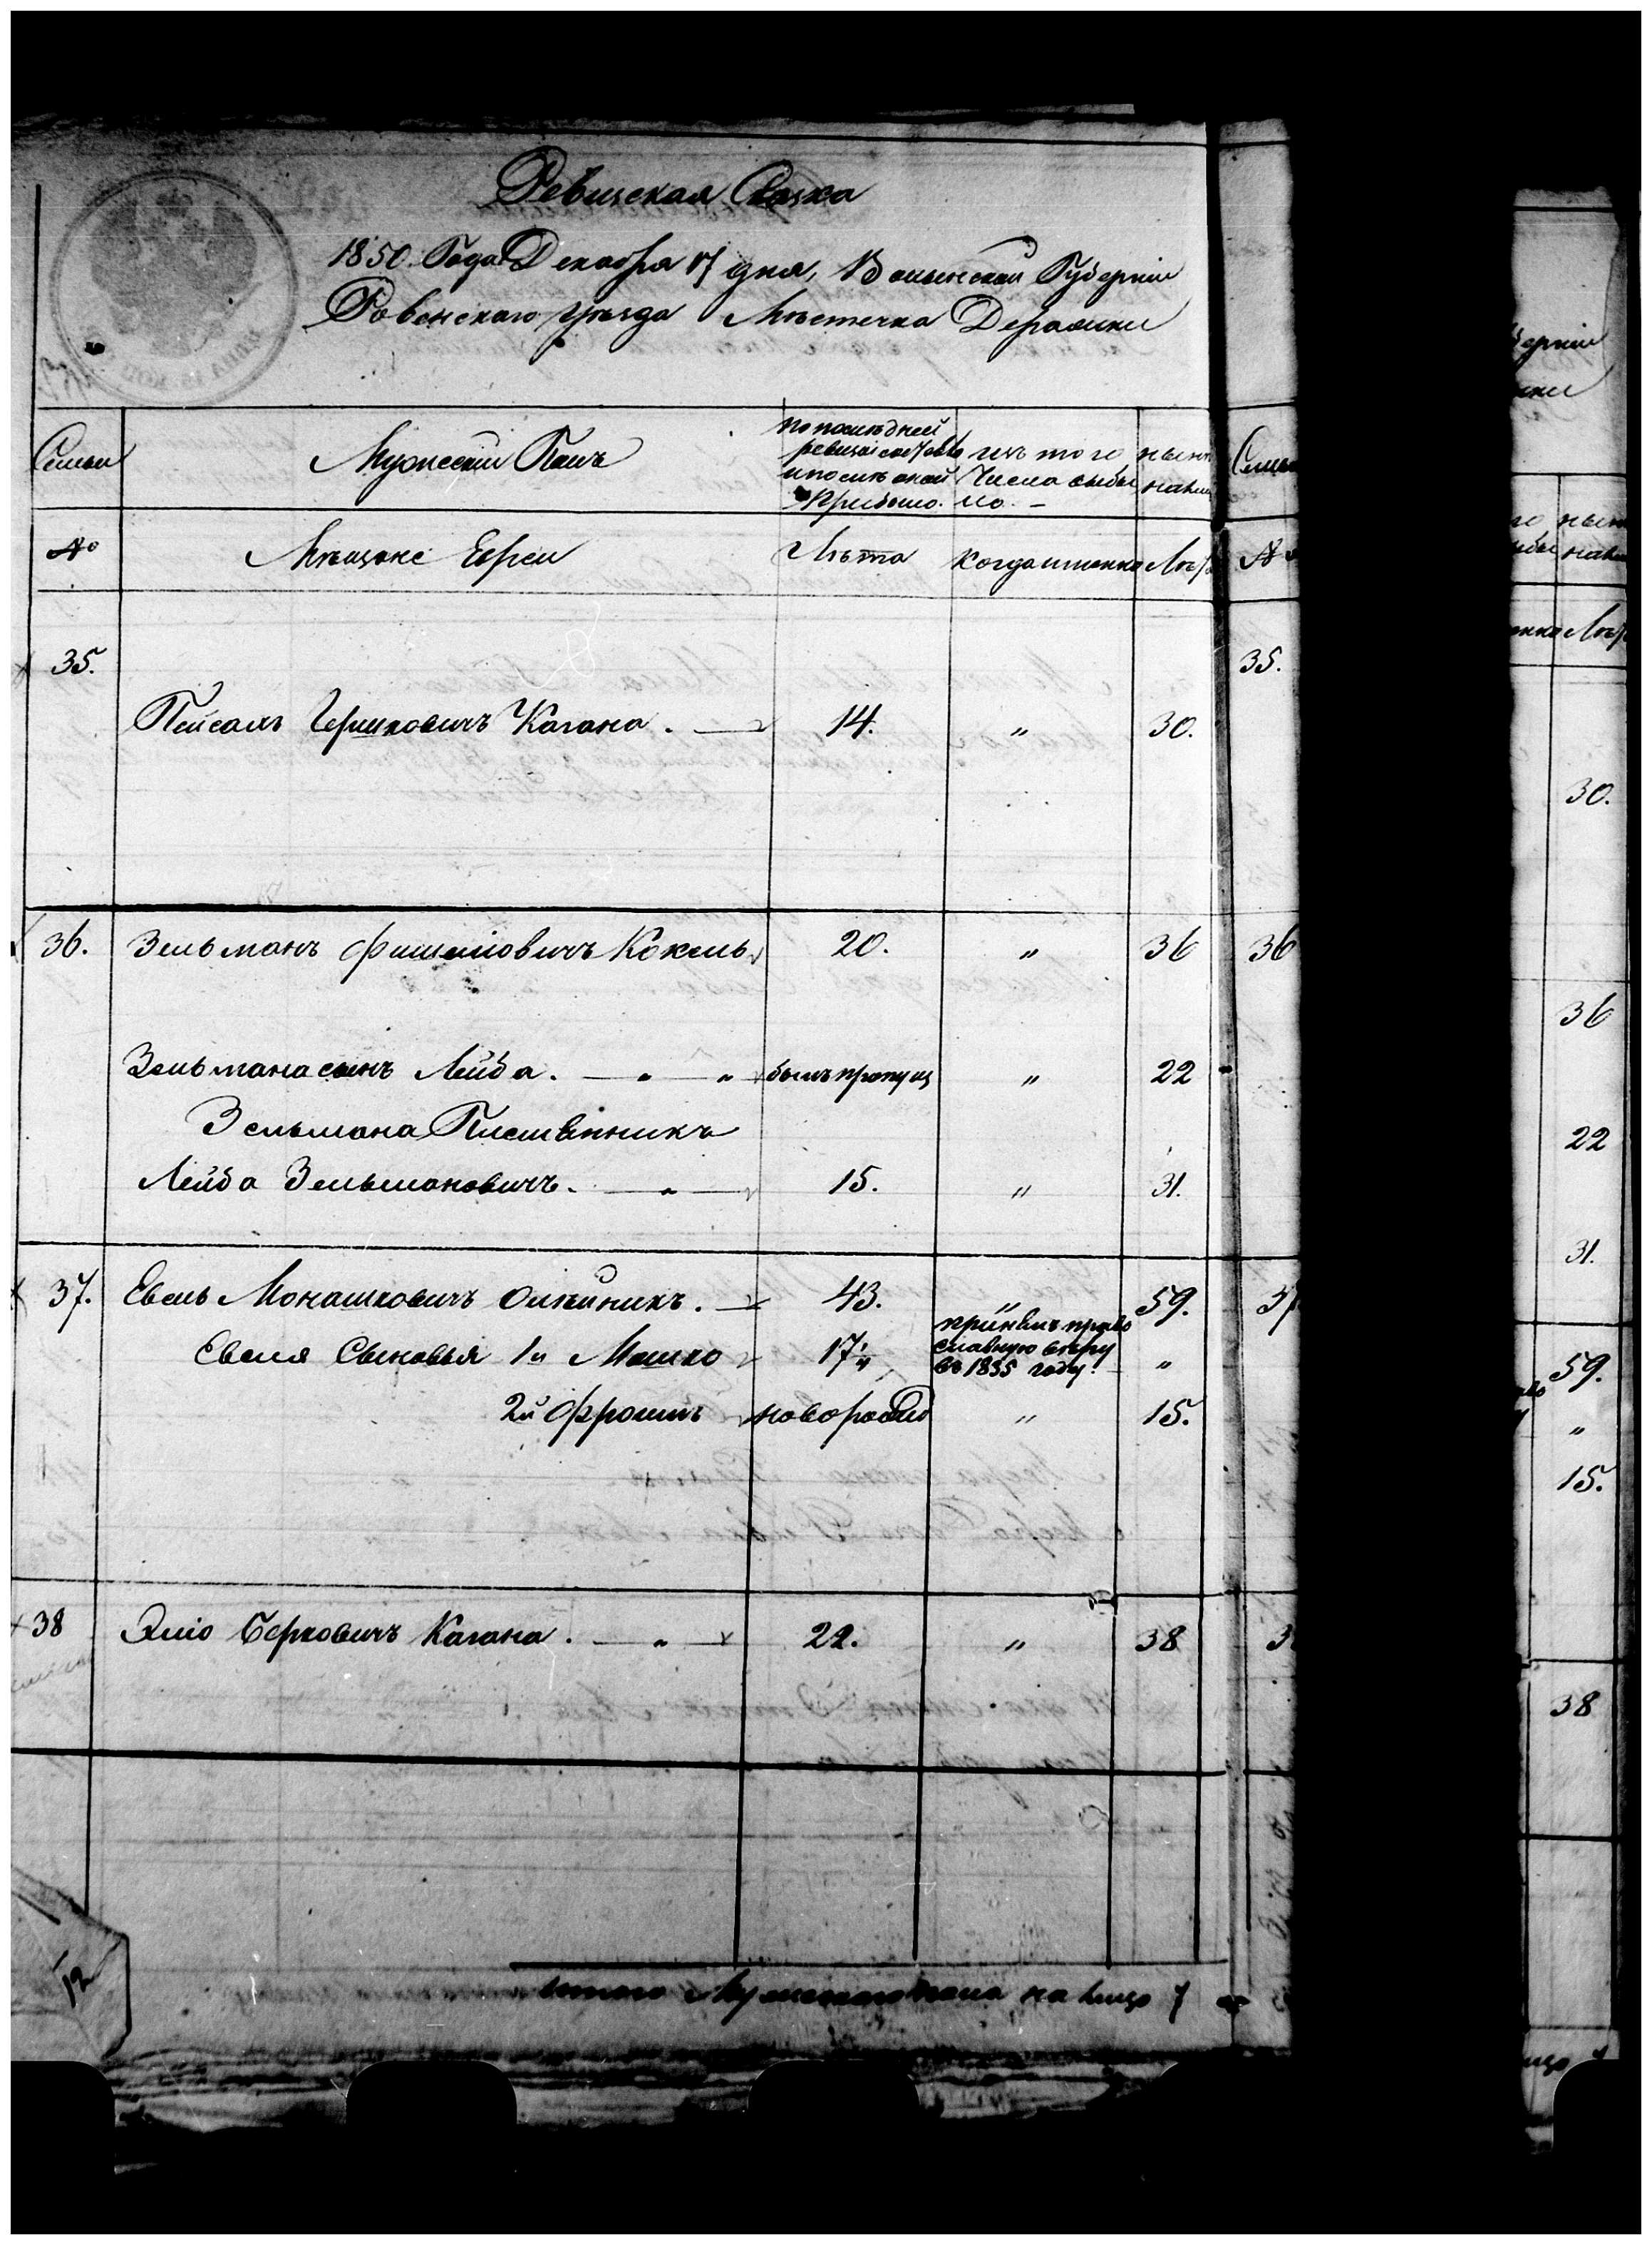 Ревизская Сказка
1850 Года Декабря 17 дня, Волынской Губерніи
Ровенского уѣзда Мѣстечка Деражни
Семьи
Мужеский Полъ
по послѣдней ревизіи состояло и послѣ оной прибыло.
изъ того числа выбыло. —
нынѣ на лицо
Семьи
№
Мѣщане Евреи
Лѣта
когда именно
Лѣта
№
35.
35.
Пейсахъ Гершковичъ Кагана. —
14.
"
30.
36.
Зельманъ Фишелиовичъ Кокель
20.
"
36
36
Зельмана сынъ Лейба. — " — "
былъ пропущ
"
22
Зельмана Племянникъ
Лейба Зельмановичъ. — " —
15.
"
31.
37.
Евель Монашковичъ Олѣйникъ. —
43.
"
59.
37
Евеля Сыновья 1й Мошко
17½
принялъ православную вѣру въ 1835 году.
"
2й Фроимъ
новорожд
"
15.
38
Элio Берковичъ Кагана. — " —
22.
"
38
3
12
итого Мужескаго пола на лицо 7
30.
36
22
31.
59.
"
15.
38